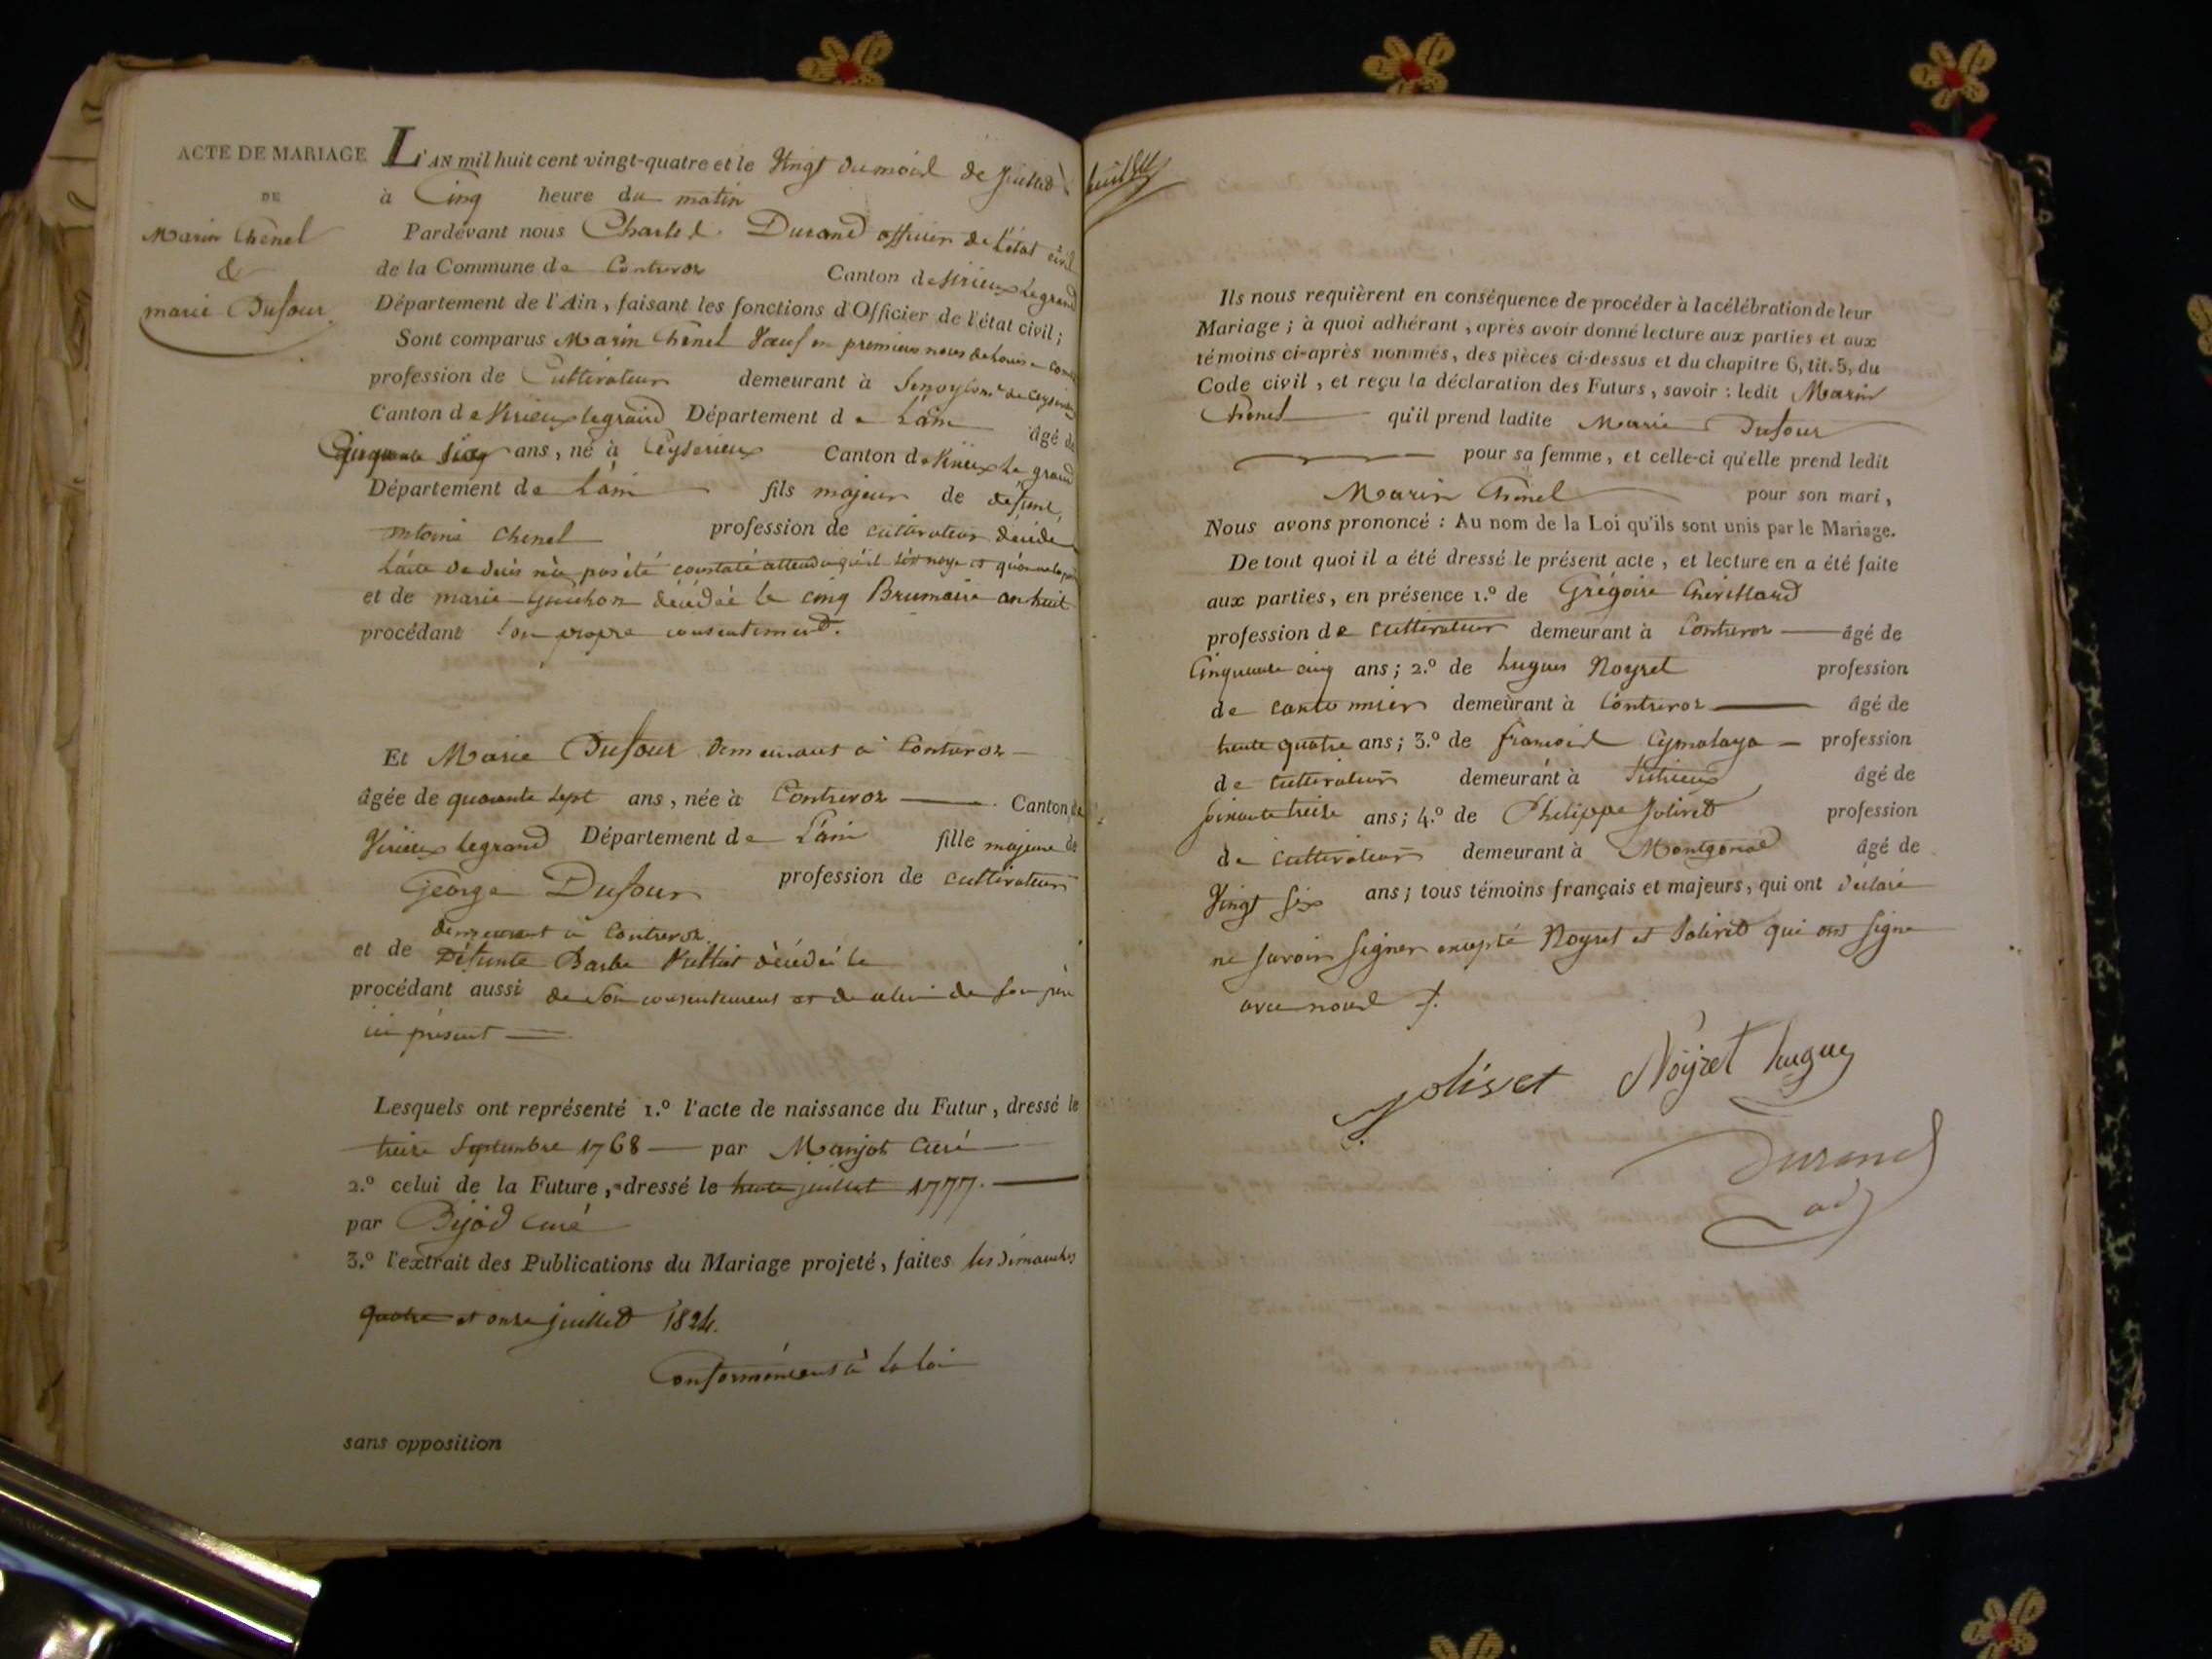 ACTE DE MARIAGE
DE
Marin Chenel
&
marie Dufour
L'AN mil huit cent vingt-quatre et le Vingt du mois de juillet
à Cinq heure du matin
Pardevant nous Charles Durand officier de l'état civil
de la Commune de Contrevoz Canton de Virieux le grand
Département de l'Ain, faisant les fonctions d'Officier de l'état civil;
Sont comparus Marin Chenel Veuf en premieres noces de Louise
profession de Cultivateur demeurant à
Canton de Virieux legrand Département de L'ain âgé de
Cinquante Six ans, né à Ceyserieux Canton de Virieux Le grand
Département de L'ain fils majeur de défunt
antoine Chenel profession de cultivateur décédé
L'acte de décès n'a pas été constaté attendu qu'il s'est noyé et qu'on ne la
et de marie Guichon décédée le cinq Brumaire an huit
procédant Son propre consentement.
Et Marie Dufour demeurant à Contrevoz
âgée de quarante sept ans, née à Contrevoz Canton de
Virieux legrand Département de L'ain fille majeure de
George Dufour profession de cultivateur
demeurant à Contrevoz
et de Défunte Barbe décédée le
procédant aussi de son consentement et de celui de son père
ici présent
Lesquels ont représenté 1.º l'acte de naissance du Futur, dressé le
treize Septembre 1768 par Manjot Curé
2.º celui de la Future, dressé le trente juillet 1777.
par Bijod curé
3.º l'extrait des Publications du Mariage projeté, faites les dimanches
quatre et onze juillet 1824.
Conformément à la loi
sans opposition
juillet
Ils nous requièrent en conséquence de procéder à la célébration de leur
Mariage; à quoi adhérant, après avoir donné lecture aux parties et aux
témoins ci-après nommés, des pièces ci-dessus et du chapitre 6, tit. 5, du
Code civil, et reçu la déclaration des Futurs, savoir: ledit Marin
Chenel qu'il prend ladite Marie Dufour
pour sa femme, et celle-ci qu'elle prend ledit
Marin Chenel pour son mari,
Nous avons prononcé: Au nom de la Loi qu'ils sont unis par le Mariage.
De tout quoi il a été dressé le présent acte, et lecture en a été faite
aux parties, en présence 1.º de Grégoire Chevilland
profession de Cultivateur demeurant à Contrevoz âgé de
Cinquante cinq ans; 2.º de hugues Noyret profession
de cantonnier demeurant à Contrevoz âgé de
trente quatre ans; 3.º de francois Cymalaya profession
de cultivateur demeurant à âgé de
Soixante treize ans; 4.º de Philippe Jolivet profession
de Cultivateur demeurant à Montgonod âgé de
Vingt Six ans; tous témoins français et majeurs, qui ont déclaré
ne savoir signer excepté Noyret et Jolivet qui ont signé
avec nous
Jolivet Noyret hugue
Durand
adj